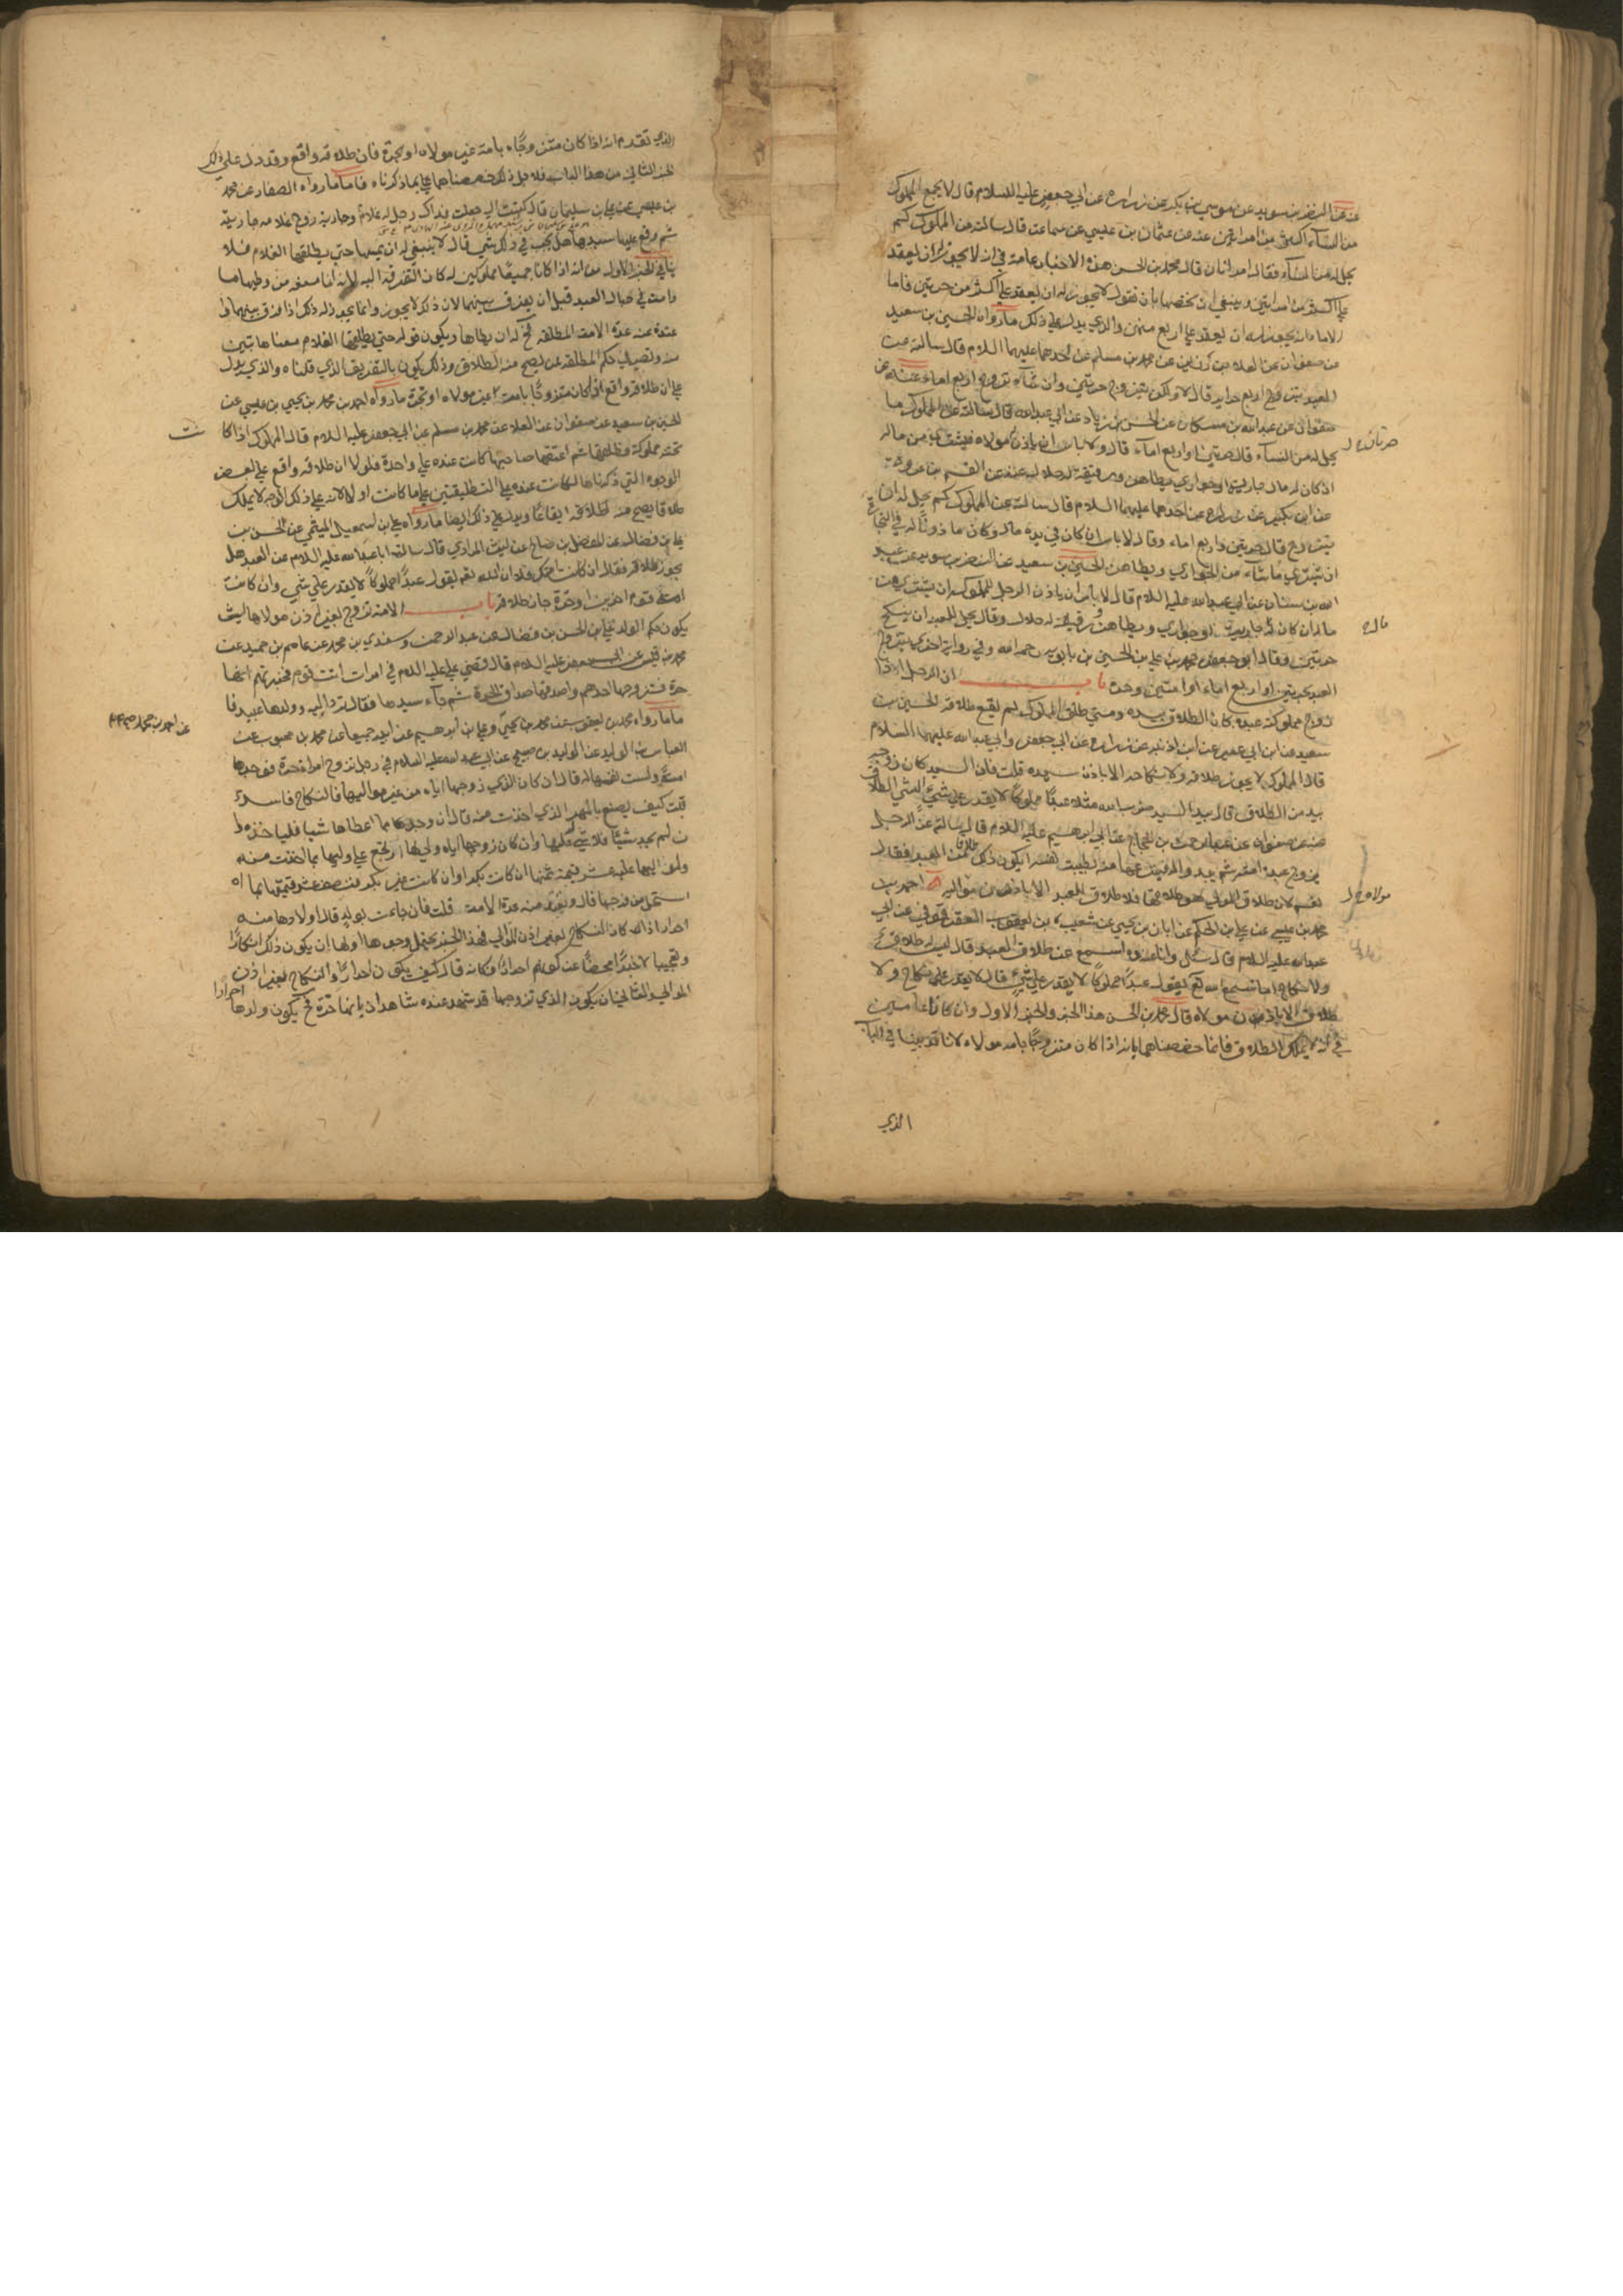 عنه عن النضر بن سويد عن موسى بن بكر عن زرارة عن ابي جعفر عليه السلام قال لا يجمع المملوك
من النساء اكثر من امراتين عنه عن عثمان بن عيسى عن سماعة قال سالته عن المملوك كم
يحل له من النساء فقال امراتان قال محمد بن الحسن هذه الاخبار عامة في انه لا يجوز له ان يعقد
على اكثر من امراتين وينبغي ان نخصها بان نقول لا يجوز له ان يعقد على اكثر من حرتين فاما
الاماء فانه يجوز له ان يعقد على اربع منهن والذي يدل على ذلك ما رواه الحسين بن سعيد
عن صفوان عن العلاء بن رزين عن محمد بن مسلم عن احدهما عليهما السلام قال سالته عن
العبد يتزوج اربع حراير قال لا ولكن يتزوج حرتين وان شاء تزوج اربع اماء عنه عن
صفوان عن عبدالله بن مسكان عن الحسن بن زياد عن ابي عبدالله قال سالته عن المملوك ما
يحل له من النساء قال حرتين او اربع اماء قال ولا باس ان ياذن له مولاه فيشتري من ماله
حرتان ل
ان كان له مال جارية او جواري يطاهن ورقيقه له حلال عنه عن القسم عن عروة
عن ابن بكير عن زرارة عن احدهما عليهما السلام قال سالته عن المملوك كم يحل له ان
يتزوج قال حرتين واربع اماء وقال لا باس ان كان في يده مال وكان ماذونا له في التجارة
ان يشتري ما شاء من الجواري ويطاهن الحسين بن سعيد عن النضر بن سويد عن عبد
الله بن سنان عن ابي عبدالله عليه السلام قال لا باس ان ياذن الرجل لمملوكه ان يشتري من
ماله ان كان له جارية او جواري ويطاهن ورقيقه له حلال وقال يحل للعبد ان ينكح
ماله
حرتين وقال ابو جعفر محمد بن علي بن الحسين بن بابويه رحمه الله وفي رواية اخرى يتزوج
العبد بحرتين او اربع اماء او امتين وحرة باب ان الرجل اذا
زوج مملوكته عبده كان الطلاق بيده ومتى طلق المملوك لم يقع طلاقه الحسين بن
سعيد عن ابن ابي عمير عن ابن اذينه عن زرارة عن ابي جعفر وابي عبدالله عليهما السلام
قالا المملوك لا يجوز طلاقه ولا نكاحه الا باذن سيده قلت فان السيد كان زوجه
بيد من الطلاق قال بيد السيد ضرب الله مثلا عبدا مملوكا لا يقدر على شيء الشيء الطلاق
عنه عن صفوان عن عبد الرحمن بن الحجاج عن ابي ابرهيم عليه السلام قال سالته عن الرجل
يزوج عبده امته ثم يبدو له فينزعها منه بطيبة نفسه ايكون ذلك طلاقا من العبد فقال
نعم لان طلاق المولى هو طلاقها فلا طلاق للعبد الا باذن مواليه احمد بن
مولاه ل
محمد بن عيسى عن علي بن الحكم عن ابان بن يحيى عن شعيب بن يعقوب العقرقوفي عن ابي
عبدالله عليه السلام قال سئل وانا عنده اسمع عن طلاق العبد قال ليس له طلاق
ولا نكاح اما تسمع الله تع يقول عبدا مملوكا لا يقدر على شيء قال لا يقدر على نكاح ولا
طلاق الا باذن مولاه قال محمد بن الحسن هذا الخبر والخبر الاول وان كانا عامين
في انه لا يملك الطلاق فانما خصصناهما بانه اذا كان متزوجا بامة مولاه لانا قد بينا في الباب
الذي
الذي تقدم انه اذا كان متزوجا بامة غير مولاه او بحرة فان طلاقه واقع وقد دل على ذلك
الخبر الثاني من هذا الباب فلاجل ذلك خصصناهما بما ذكرناه فاما ما رواه الصفار عن محمد
بن عيسى عن علي بن سليمان قال كتبت اليه جعلت فداك رجل له غلام وجارية زوج غلامه جاريته
ثم وقع عليها سيدها هل يجب في ذلك شي قال لا ينبغي له ان يمسها حتى يطلقها الغلام فلا
ينافي الخبر الاول من انه اذا كانا جميعا مملوكين له كان التفرقة اليه لانه انما منعه من وطيها ما
دامت في حبال العبد قبل ان يفرق بينهما لان ذلك لا يجوز وانما يجوز له ذلك اذا فرق بينهما و
عنده عدة الامة المطلقة فح له ان يطاها ويكون قوله حتى يطلقها الغلام معناها تبين
منه وتصير في حكم المطلقة عن يصح منه الطلاق وذلك يكون بالتفريق الذي قلناه والذي يدل
على ان طلاقه واقع اذا كان متزوجا بامة غير مولاه او بحرة ما رواه احمد بن محمد بن يحيى بن عيسى عن
الحسين بن سعيد عن صفوان عن العلا عن محمد بن مسلم عن ابي جعفر عليه السلام قال المملوك اذا كا
نت
تحته مملوكة وطلقها ثم اعتقها صاحبها كانت عنده على واحدة فلولا ان طلاقه واقع على بعض
الوجوه التي ذكرناها لكانت عنده على التطليقتين على ما كانت اولا لانه على ذلك الوجه لا يملك
طلاقا يصح منه اطلاقه ايقاعا ويدل على ذلك ايضا ما رواه علي بن اسمعيل الميثمي عن الحسن بن
علي بن فضال عن المفضل بن صالح عن ليث المرادي قال سالت ابا عبدالله عليه السلام عن العبد هل
يجوز طلاقه فقال ان كانت امتك فلا ان الله تعم يقول عبدا مملوكا لا يقدر على شي وان كانت
امة قوم اخرين او حرة جاز طلاقه باب الامة تزوج بغير اذن مولاها ايش
يكون حكم الولد علي بن الحسن بن فضال عن عبد الرحمن وسندي بن محمد عن عاصم بن حميد عن
محمد بن قيس عن ابي جعفر عليه السلام قال قضى علي عليه السلام في امراة اتت قوم فخبرتهم انها
حرة فتزوجها احدهم واصدقها صداق الحرة ثم جاء سيدها فقال ترد اليه وولدها عبيد فا
ما ما رواه محمد بن يعقوب عن محمد بن يحيى وعلي بن ابرهيم عن ابيه جميعا عن محمد بن محبوب عن
عن احمد بن محمد ص
العباس بن الوليد عن الوليد بن صبيح عن ابي عبدالله عليه السلام في رجل تزوج امراة حرة فوجدها
امة دلست نفسها له قال ان كان الذي زوجها اياه من غير مواليها فالنكاح فاسد
قلت كيف يصنع بالمهر الذي اخذت منه قال ان وجد مما اعطاها شيا فلياخذه و
ان لم يجد شيئا فلا شي له عليها وان كان زوجها اياه ولي لها ارتجع على وليها بما اخذت منه
ولمواليها عليه عشر قيمة ثمنها ان كانت بكرا وان كانت غير بكر فنصف عشر قيمتها بما
استحل من فرجها قال وتعتد منه عدة الامة قلت فان جاءت بولد قال اولادها منه
احرار اذا كان النكاح بغير اذن الموالي فهذا الخبر يحتمل وجوها اولها ان يكون ذلك انكارا
وتعجبا لا خبرا محضا عن كونهم احرارا فكانه قال كيف يكون احرارا والنكاح بغير اذن
الموالي والثاني ان يكون الذي تزوجها قد شهد عنده شاهدان بانها حرة فح يكون ولدها
احرارا